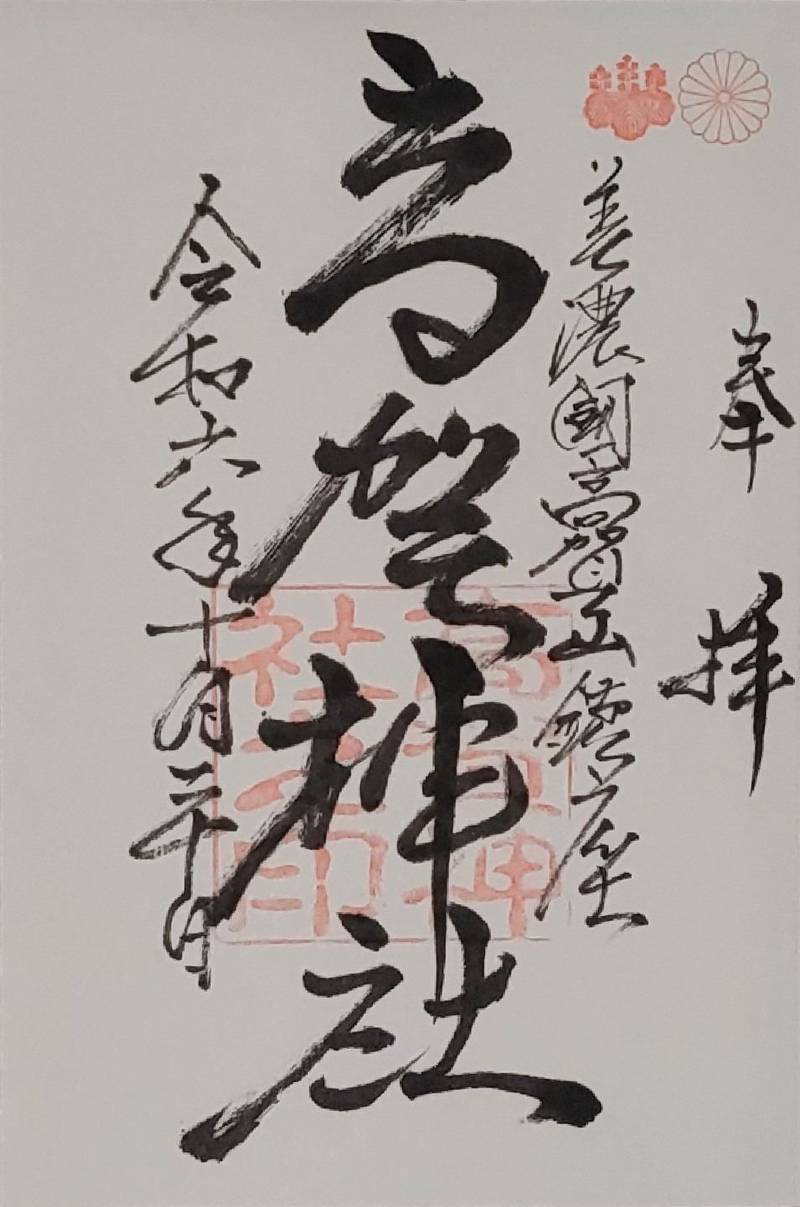 奉拝
美濃國高賀山鎮座
高賀神社
高賀神社之印
令和六年十月二十日